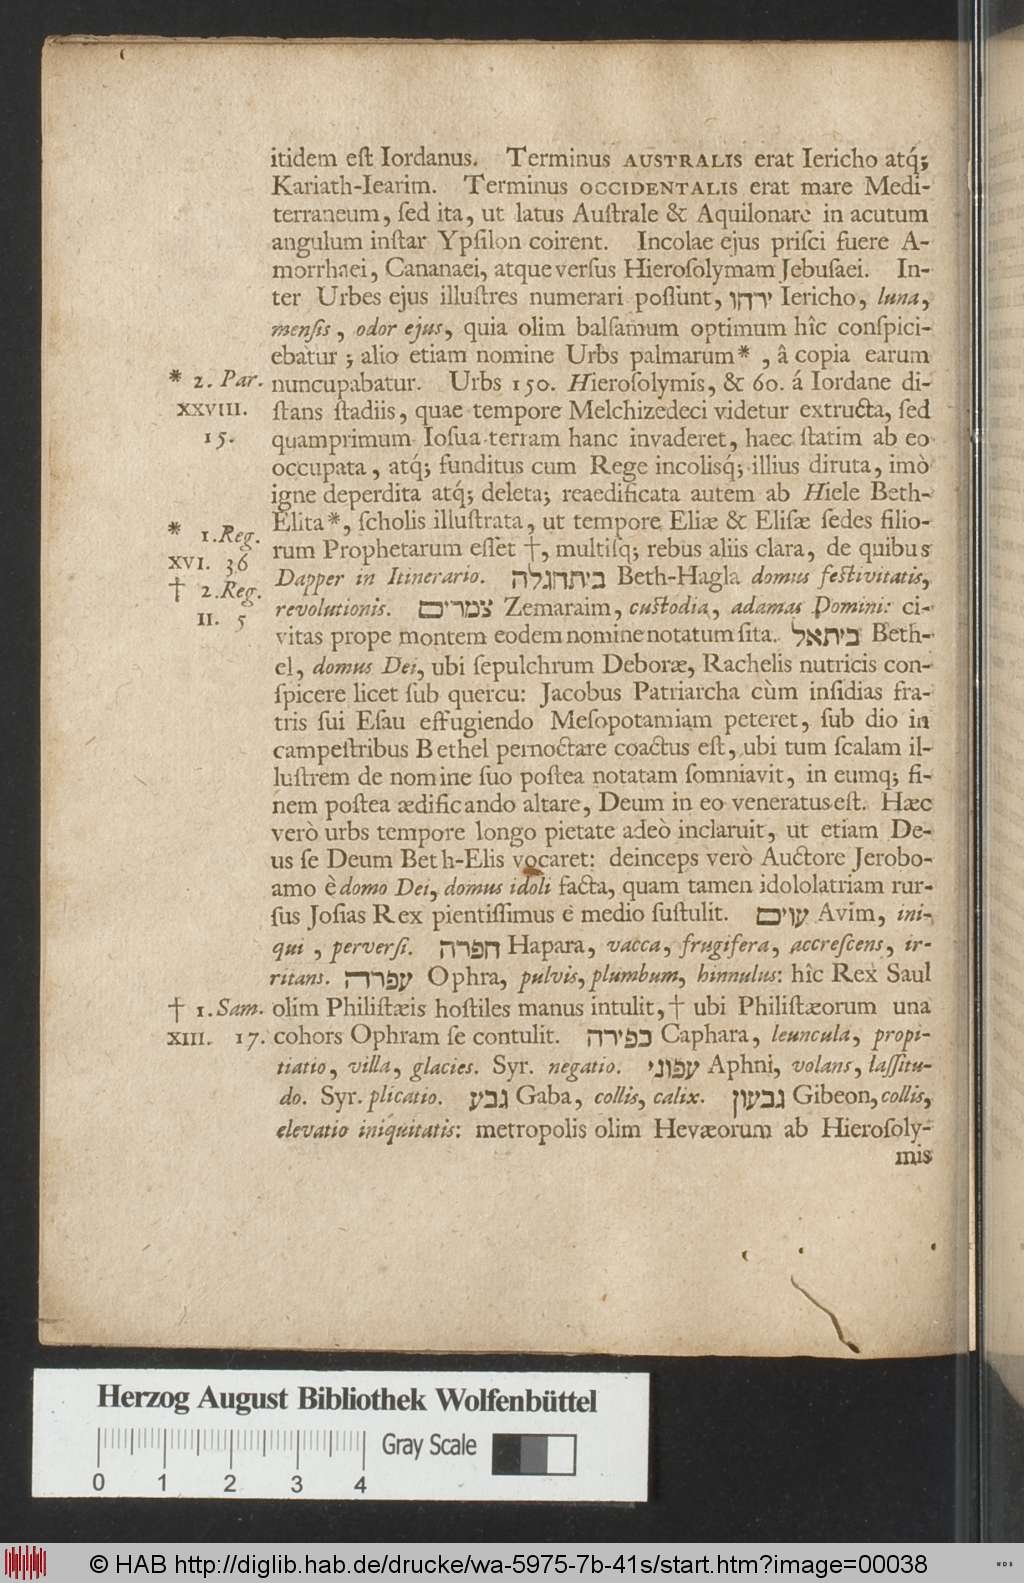 itidem eſt Iordanus. Terminus AUSTRALIS erat Iericho atq́;
Kariath-Iearim. Terminus OCCIDENTALIS erat mare Medi-
terraneum, ſed ita, ut latus Auſtrale & Aquilonare in acutum
angulum inſtar Ypſilon coirent. Incolae ejus priſci fuere A-
morrhaei, Cananaei, atque verſus Hieroſolymam Jebuſaei. In-
ter Urbes ejus illuſtres numerari poſſunt, ירהו Iericho, luna,
menſis, odor ejus, quia olim balſamum optimum hîc conſpici-
ebatur; alio etiam nomine Urbs palmarum*, â copia earum
* 2. Par. nuncupabatur. Urbs 150. Hieroſolymis, & 60. á Iordane di-
XXVIII. ſtans ſtadiis, quae tempore Melchizedeci videtur extructa, ſed
15. quamprimum Ioſua terram hanc invaderet, haec ſtatim ab eo
occupata, atq́; funditus cum Rege incolisq́; illius diruta, imò
igne deperdita atq́; deleta; reaedificata autem ab Hiele Beth-
* 1. Reg. Elita*, ſcholis illuſtrata, ut tempore Eliæ & Eliſæ ſedes filio-
XVI. 36 rum Prophetarum eſſet †, multiſq; rebus aliis clara, de quibus
† 2. Reg. Dapper in Itinerario. ביתהגלה Beth-Hagla domus feſtivitatis,
II. 5 revolutionis. צמרים Zemaraim, cuſtodia, adamas Domini: ci-
vitas prope montem eodem nomine notatum ſita. ביתאל Beth-
el, domus Dei, ubi ſepulchrum Deboræ, Rachelis nutricis con-
ſpicere licet ſub quercu: Jacobus Patriarcha cùm inſidias fra-
tris ſui Eſau effugiendo Meſopotamiam peteret, ſub dio in
campeſtribus Bethel pernoctare coactus eſt, ubi tum ſcalam il-
luſtrem de nomine ſuo poſtea notatam ſomniavit, in eumq; fi-
nem poſtea ædificando altare, Deum in eo veneratus eſt. Hæc
verò urbs tempore longo pietate adeò inclaruit, ut etiam De-
us ſe Deum Beth-Elis vocaret: deinceps verò Auctore Jerobo-
amo è domo Dei, domus idoli facta, quam tamen idololatriam rur-
ſus Joſias Rex pientiſſimus è medio ſuſtulit. עוים Avim, ini-
qui, perverſi. הפרה Hapara, vacca, frugifera, accreſcens, ir-
ritans. עפרה Ophra, pulvis, plumbum, hinnulus: hîc Rex Saul
† 1. Sam. olim Philiſtæis hoſtiles manus intulit, † ubi Philiſtæorum una
XIII. 17. cohors Ophram ſe contulit. כפירה Caphara, leuncula, propi-
tiatio, villa, glacies. Syr. negatio. עפוני Aphni, volans, laſſitu-
do. Syr. plicatio. גבע Gaba, collis, calix. גבעון Gibeon, collis,
elevatio iniquitatis: metropolis olim Hevæorum ab Hieroſoly-
mis
Herzog August Bibliothek Wolfenbüttel
Gray Scale
0 1 2 3 4
© HAB http://diglib.hab.de/drucke/wa-5975-7b-41s/start.htm?image=00038